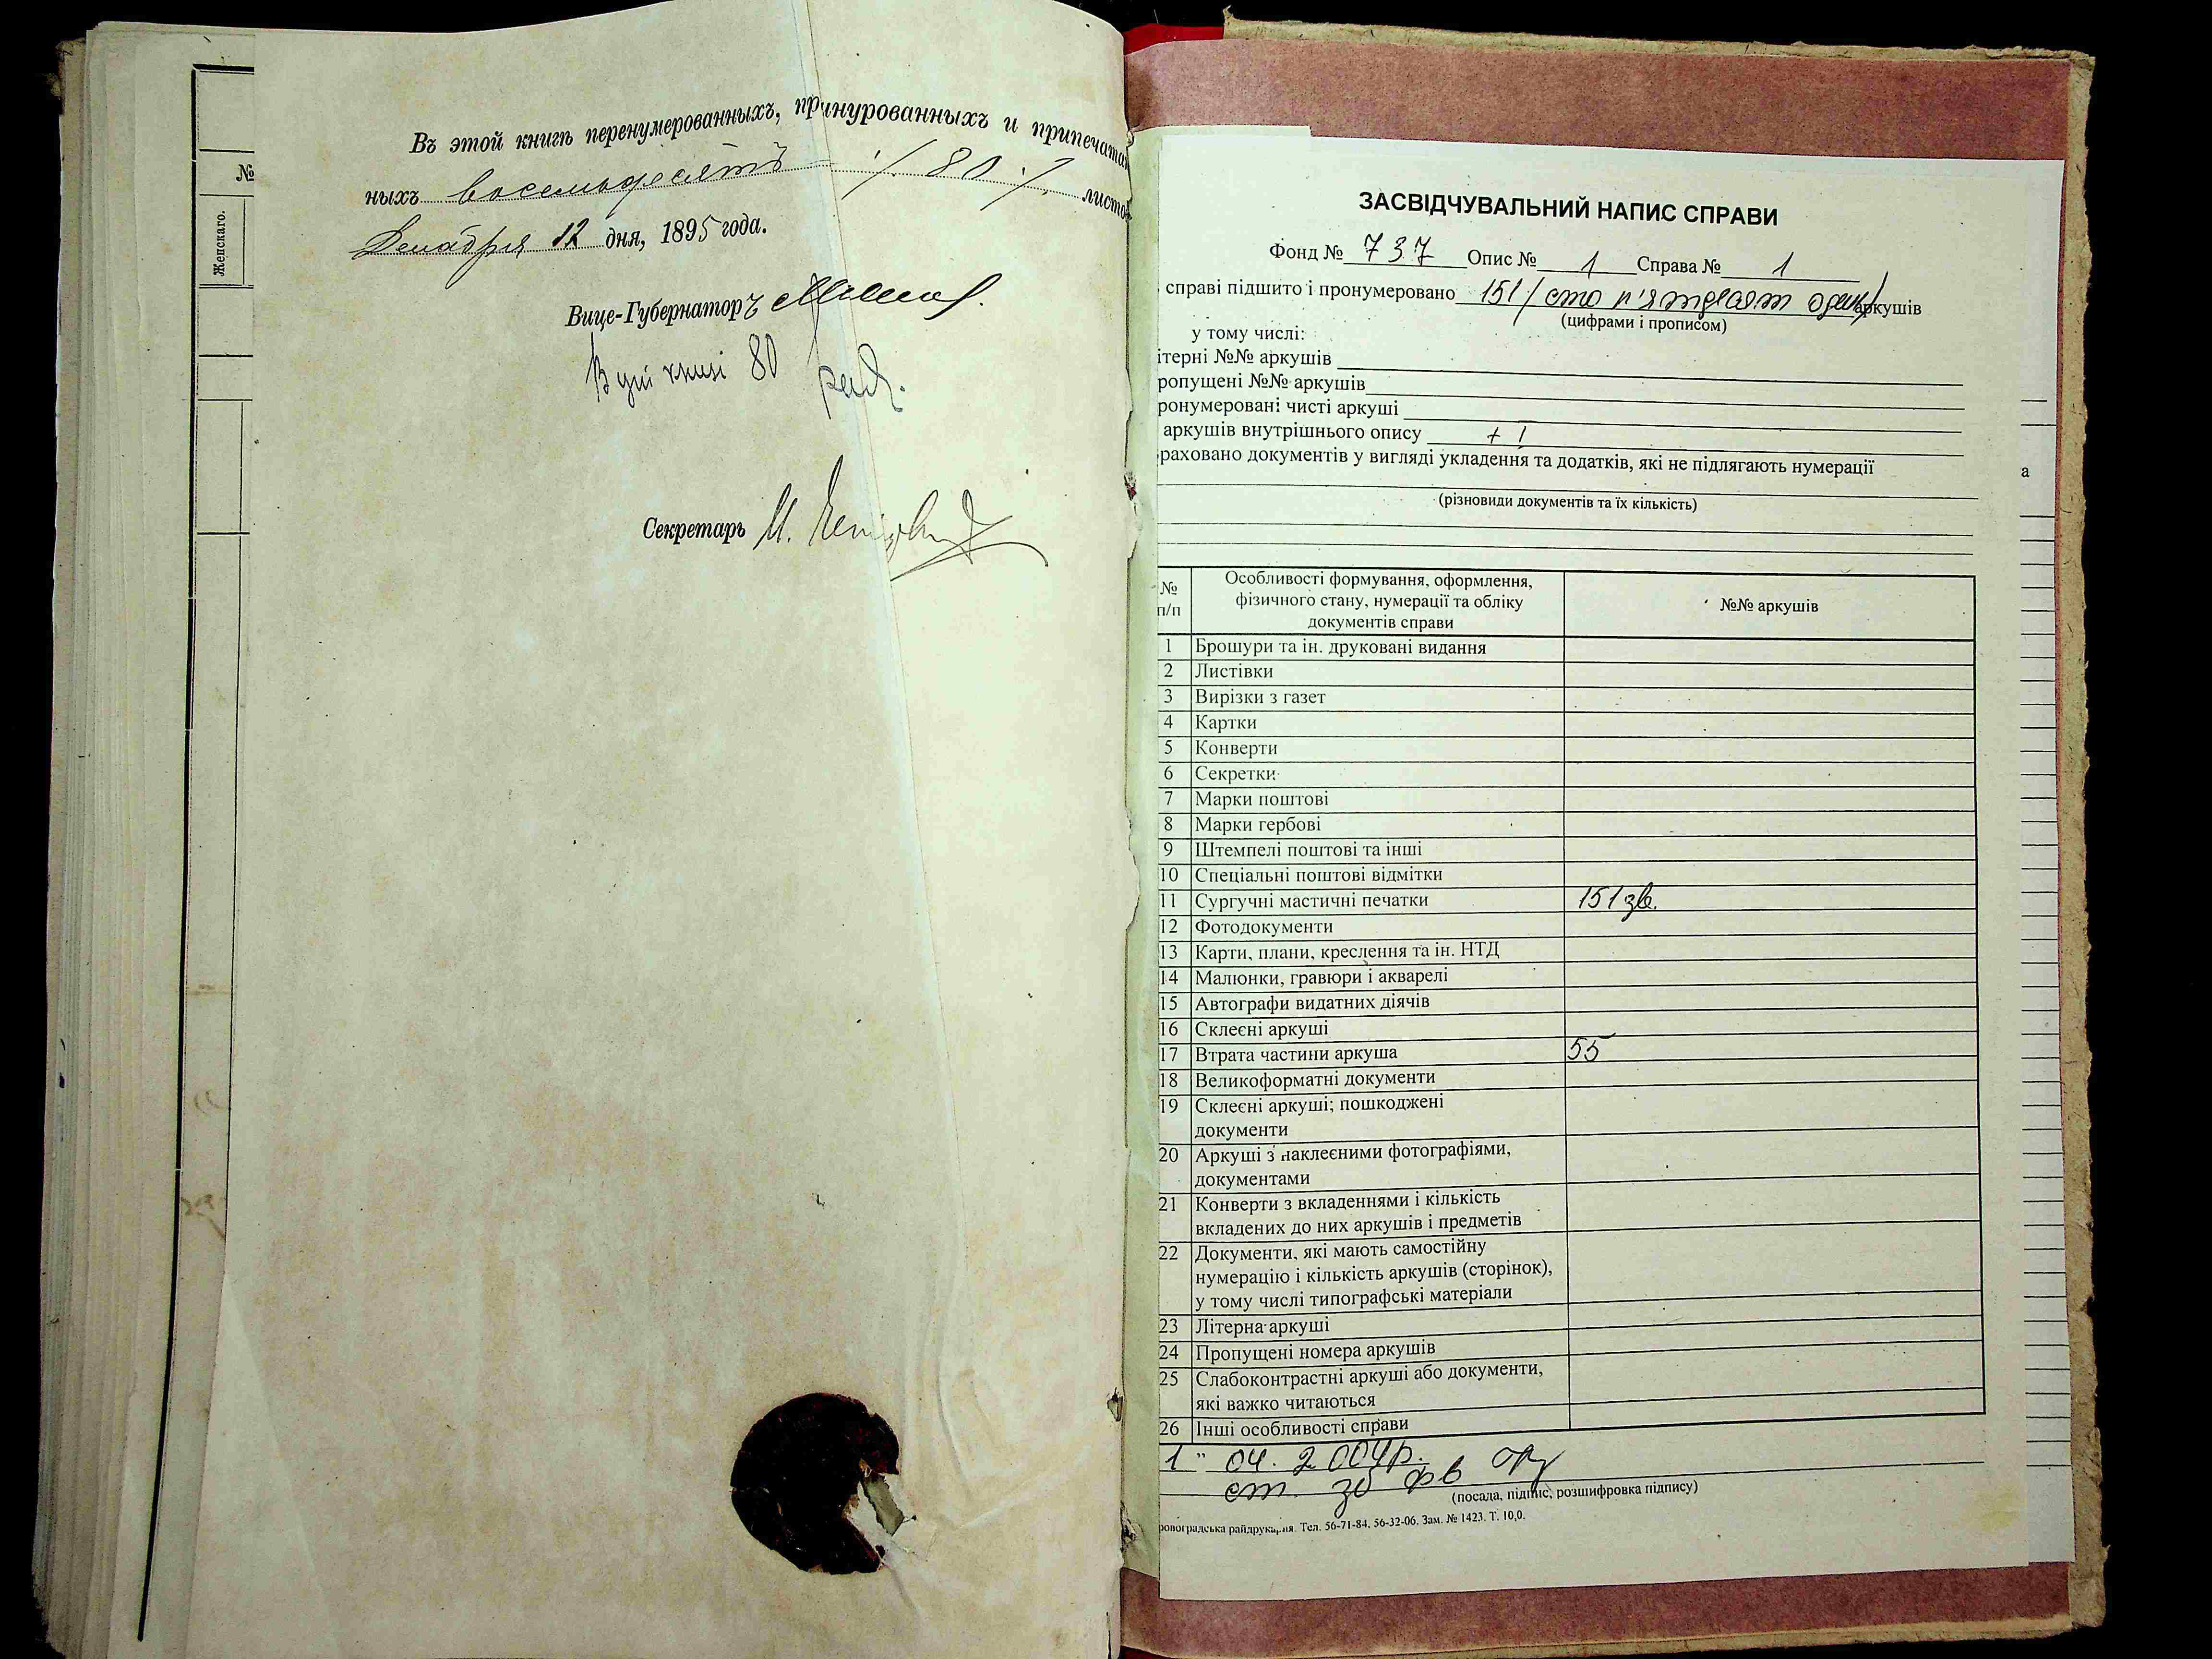 №
Женскаго.
Въ этой книгѣ перенумерованныхъ, пронурованныхъ и припечатан
ныхъ восемьдесятъ /. 80 /. листов
Декабря 12 дня, 1895 года.
Вице-Губернаторъ
В цій книзі 80
Секретарь М.
ЗАСВІДЧУВАЛЬНИЙ НАПИС СПРАВИ
Фонд № 737 Опис № 1 Справа № 1
справі підшито і пронумеровано 151 /сто п'ятдесят один/ аркушів
(цифрами і прописом)
у тому числі:
ітерні №№ аркушів
ропущені №№ аркушів
ронумеровані чисті аркуші
аркушів внутрішнього опису + 1
раховано документів у вигляді укладення та додатків, які не підлягають нумерації
а
(різновиди документів та їх кількість)
№ п/п Особливості формування, оформлення, фізичного стану, нумерації та обліку документів справи №№ аркушів
1 Брошури та ін. друковані видання
2 Листівки
3 Вирізки з газет
4 Картки
5 Конверти
6 Секретки
7 Марки поштові
8 Марки гербові
9 Штемпелі поштові та інші
10 Спеціальні поштові відмітки
11 Сургучні мастичні печатки 151 зв.
12 Фотодокументи
13 Карти, плани, креслення та ін. НТД
14 Малюнки, гравюри і акварелі
15 Автографи видатних діячів
16 Склеєні аркуші
17 Втрата частини аркуша 55
18 Великоформатні документи
19 Склеєні аркуші; пошкоджені
документи
20 Аркуші з наклеєними фотографіями,
документами
21 Конверти з вкладеннями і кількість
вкладених до них аркушів і предметів
22 Документи, які мають самостійну
нумерацію і кількість аркушів (сторінок),
у тому числі типографські матеріали
23 Літерна аркуші
24 Пропущені номера аркушів
25 Слабоконтрастні аркуші або документи,
які важко читаються
26 Інші особливості справи
1 " 04. 2004р.
ст. зб фв
(посада, підпис, розшифровка підпису)
ровоградська райдрукарня. Тел. 56-71-84, 56-32-06. Зам. № 1423. Т. 10,0.